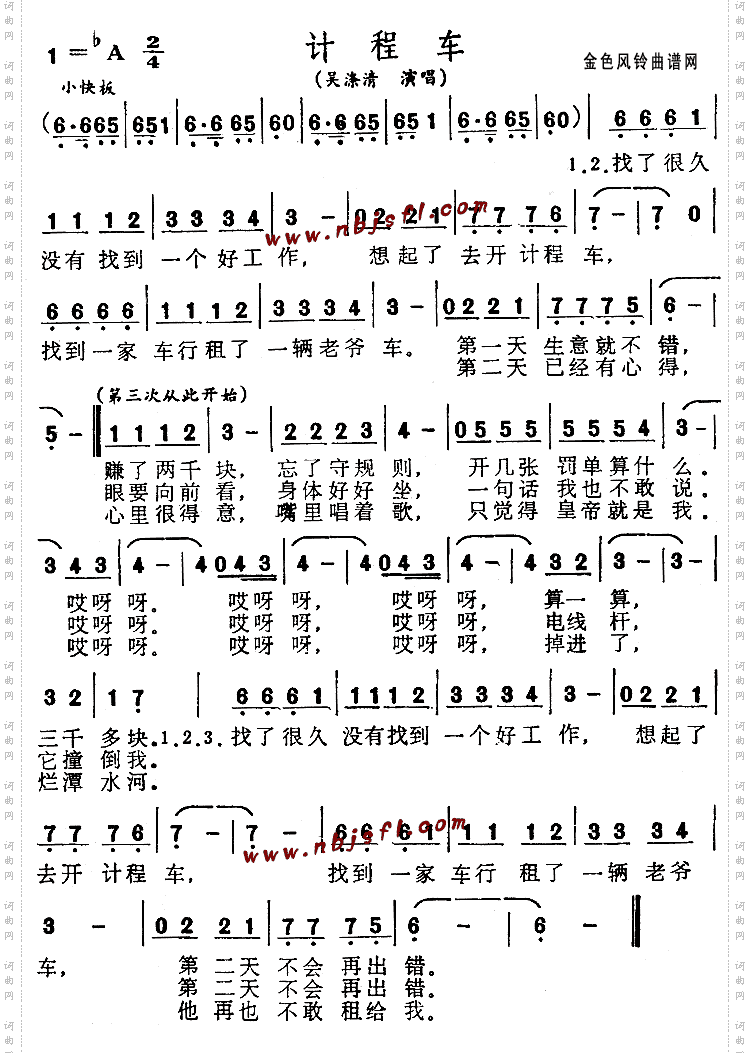 1=♭A 2/4
计程车
金色风铃曲谱网
小快板
(吴涤清 演唱)
(6·665|651|6·6 65|60|6·6 65|65 1|6·6 65|60)|6 6 6 1|
1.2.找了很久
1 1 1 2|3 3 3 4|3 -|02 21|77 76|7 -|7 0
没有 找到 一个 好工 作, 想起了 去开 计程 车,
www.nbjsfl.com
6666|1112|3334|3-|0221|7775|6-|
找到一家 车行租了 一辆老爷 车。 第一天 生意就不 错,
第二天 已经有心 得,
(第三次从此开始)
5-‖1112|3-|2223|4-|0555|5554|3-|
赚了两千块, 忘了守规则, 开几张 罚单算什么。
眼要向前看, 身体好好坐, 一句话 我也不敢说。
心里很得意, 嘴里唱着歌, 只觉得 皇帝就是我。
3 43|4-|4043|4-|4043|4-|4332|3-|
哎呀呀。 哎呀呀, 哎呀呀, 算一算,
哎呀呀。 哎呀呀, 哎呀呀, 电线杆,
哎呀呀。 哎呀呀, 哎呀呀, 掉进了,
3 2|1 7| 6661|1112|3334|3-|0221|
三千 多块。1.2.3.找了很久 没有找到 一个好工 作, 想起了
它撞 倒我。
烂潭 水河。
77 76|7 -|7 -|66 61|11 12|33 34|
去开 计程 车, 找到 一家 车行 租了 一辆 老爷
www.nbjsfl.com
3 -|02 21|77 75|6 -|6 -‖
车, 第 二天 不会 再出 错。
第 二天 不会 再出 错。
他 再也 不敢 租给 我。
词曲网